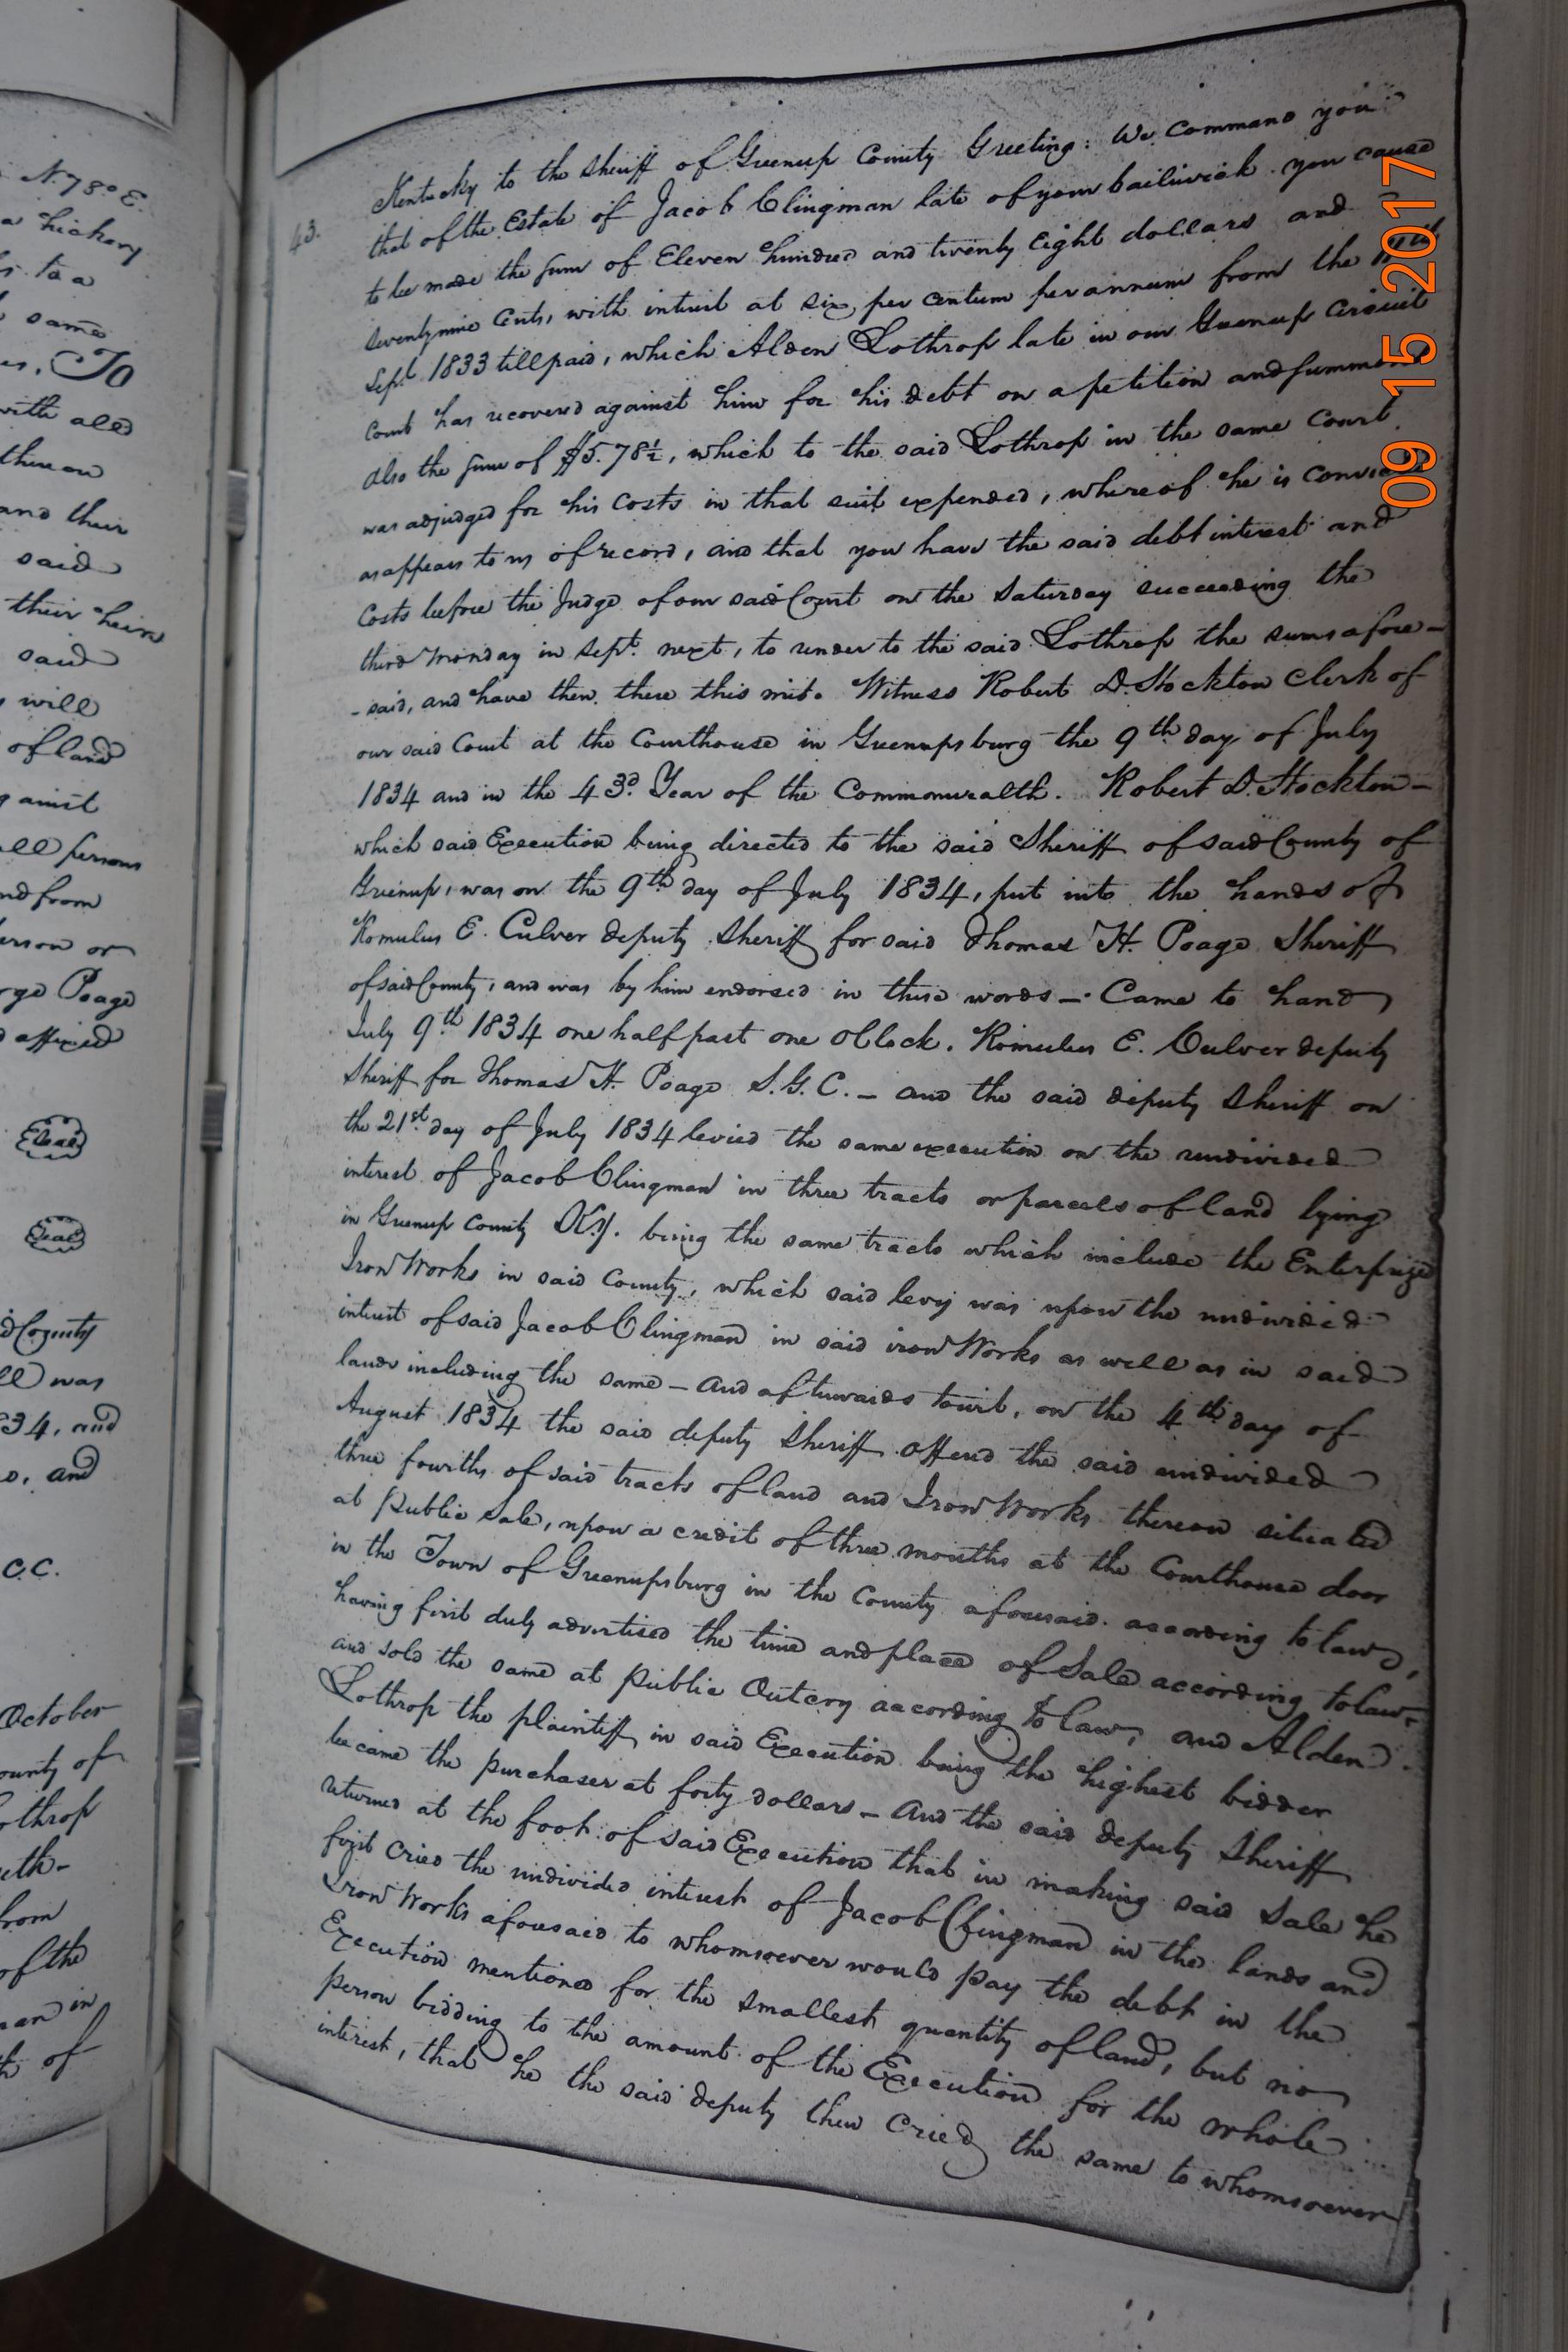 N. 78° E.
a hickory
to a
same
To
with all
thereon
and their
said
their heirs
said
will
of land
against
all persons
and from
person or
Poage
affixed
Seal
Seal
County
was
34, and
and
C.C.
October
County of
Lothrop
from
of the
in
of
43.
Kentucky to the Sheriff of Greenup County Greeting: We Command you
that of the Estate of Jacob Clingman late of your bailiwick you cause
to be made the sum of Eleven hundred and twenty Eight dollars and
seventy nine Cents, with interest at six per centum per annum from the
Sept. 1833 till paid, which Alden Lothrop late in our Greenup Circuit
Court has recovered against him for his debt on a petition and summons
Also the sum of $5.78½, which to the said Lothrop in the same Court
was adjudged for his Costs in that suit expended, whereof he is convict
as appears to us of record, and that you have the said debt interest and
Costs before the Judge of our said Court on the Saturday succeeding the
third Monday in Sept. next, to render to the said Lothrop the sums afore-
-said, and have then there this writ. Witness Robert D. Stockton Clerk of
our said Court at the Courthouse in Greenupsburg the 9th day of July
1834 and in the 43d. Year of the Commonwealth. Robert D. Stockton -
which said Execution being directed to the said Sheriff of said County of
Greenup, was on the 9th day of July 1834, put into the hands of
Romulus E. Culver deputy Sheriff for said Thomas H. Poage Sheriff
of said County, and was by him endorsed in these words -. Came to hand
July 9th 1834 one half past one O Clock. Romulus E. Culver deputy
Sheriff for Thomas H. Poage S.G.C. - and the said deputy Sheriff on
the 21st day of July 1834 levied the same execution on the undivided
interest of Jacob Clingman in three tracts or parcels of land lying
in Greenup County Ky. being the same tracts which include the Enterprize
Iron Works in said County, which said levy was upon the undivided
interest of said Jacob Clingman in said iron Works as well as in said
lands including the same - and afterwards towit, on the 4th day of
August 1834 the said deputy Sheriff offered the said undivided
three fourths of said tracts of land and Iron Works thereon situated
at Public Sale, upon a credit of three months at the Courthouse door
in the Town of Greenupsburg in the County aforesaid according to law,
having first duly advertised the time and place of Sale according to law -
and sold the same at public Outcry according to law, and Alden
Lothrop the plaintiff in said Execution being the highest bidder
became the purchaser at forty dollars - And the said deputy Sheriff
returned at the foot of said Execution that in making said Sale he
first Cried the undivided interest of Jacob Clingman in the lands and
Iron Works aforesaid to whomsoever would pay the debt in the
Execution mentioned for the smallest quantity of land, but no
person bidding to the amount of the Execution for the whole
interest, that he the said deputy then Cried the same to whomsoever
09 15 2017